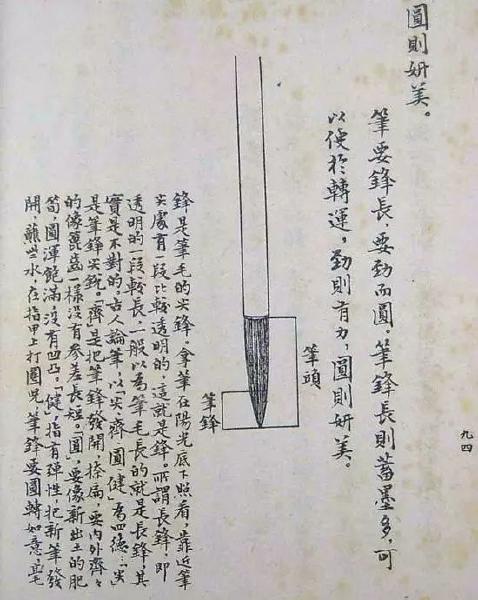 圓則妍美。
筆要鋒長，要勁而圓。筆鋒長則蓄墨多，可
以使於轉運，勁則有力，圓則妍美。
九四
筆頭
筆鋒
鋒是筆毛的尖鋒。拿筆在陽光底下照看，靠近筆
尖處有一段比較透明的，這就是鋒。所謂長鋒，即
透明的一段較長，一般以為筆毛長的就是長鋒，其
實是不對的。古人論筆，以尖、齊、圓、健，為四德：「尖」
是筆鋒尖銳。「齊」是把筆鋒發開捺扁，要內外齊々
的像篦齒一樣沒有參差長短。「圓」要像新出土的肥
筍，圓渾飽滿沒有凹凸。「健」指有彈性，把新筆發
開，蘸些水，在指甲上打圓兒，筆鋒要圓轉如意，